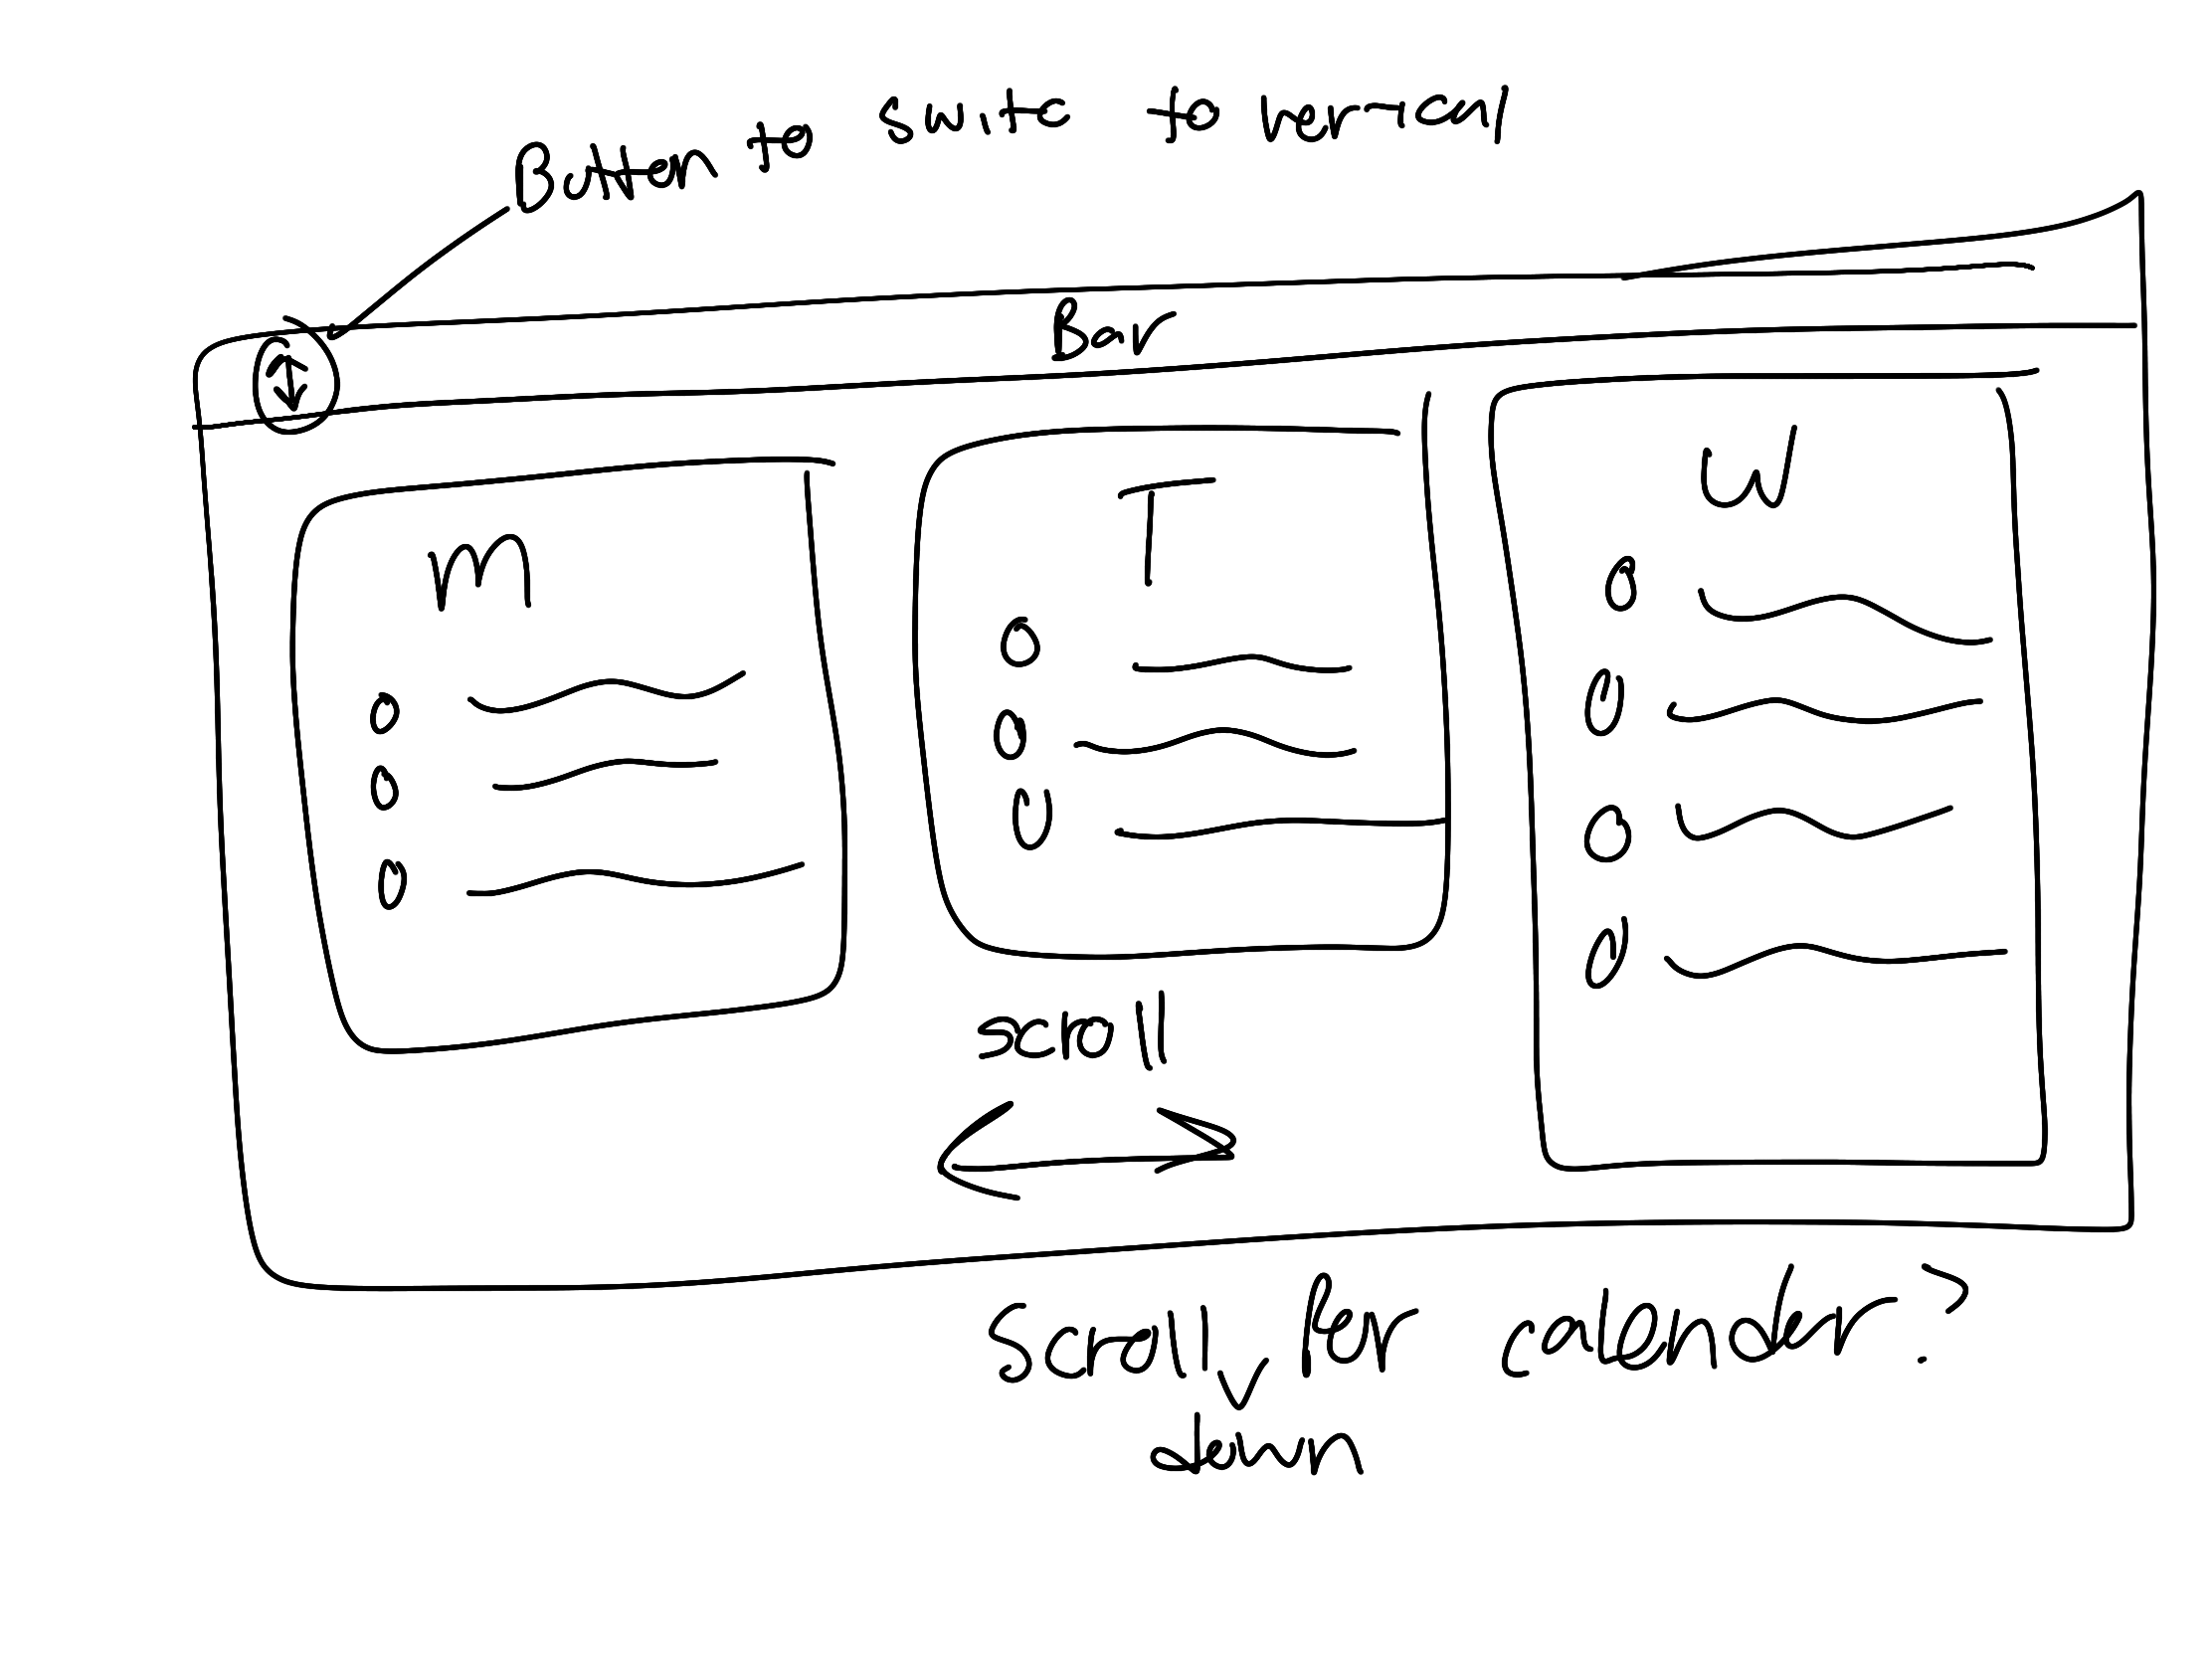 Button to switc to vertical
Bar
M
T
W
scroll
Scroll down for calender?